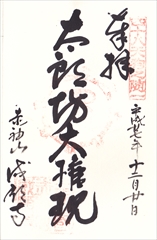 奉拝
平成廿七年十二月廿日
太郎坊大権現
赤神山成願寺